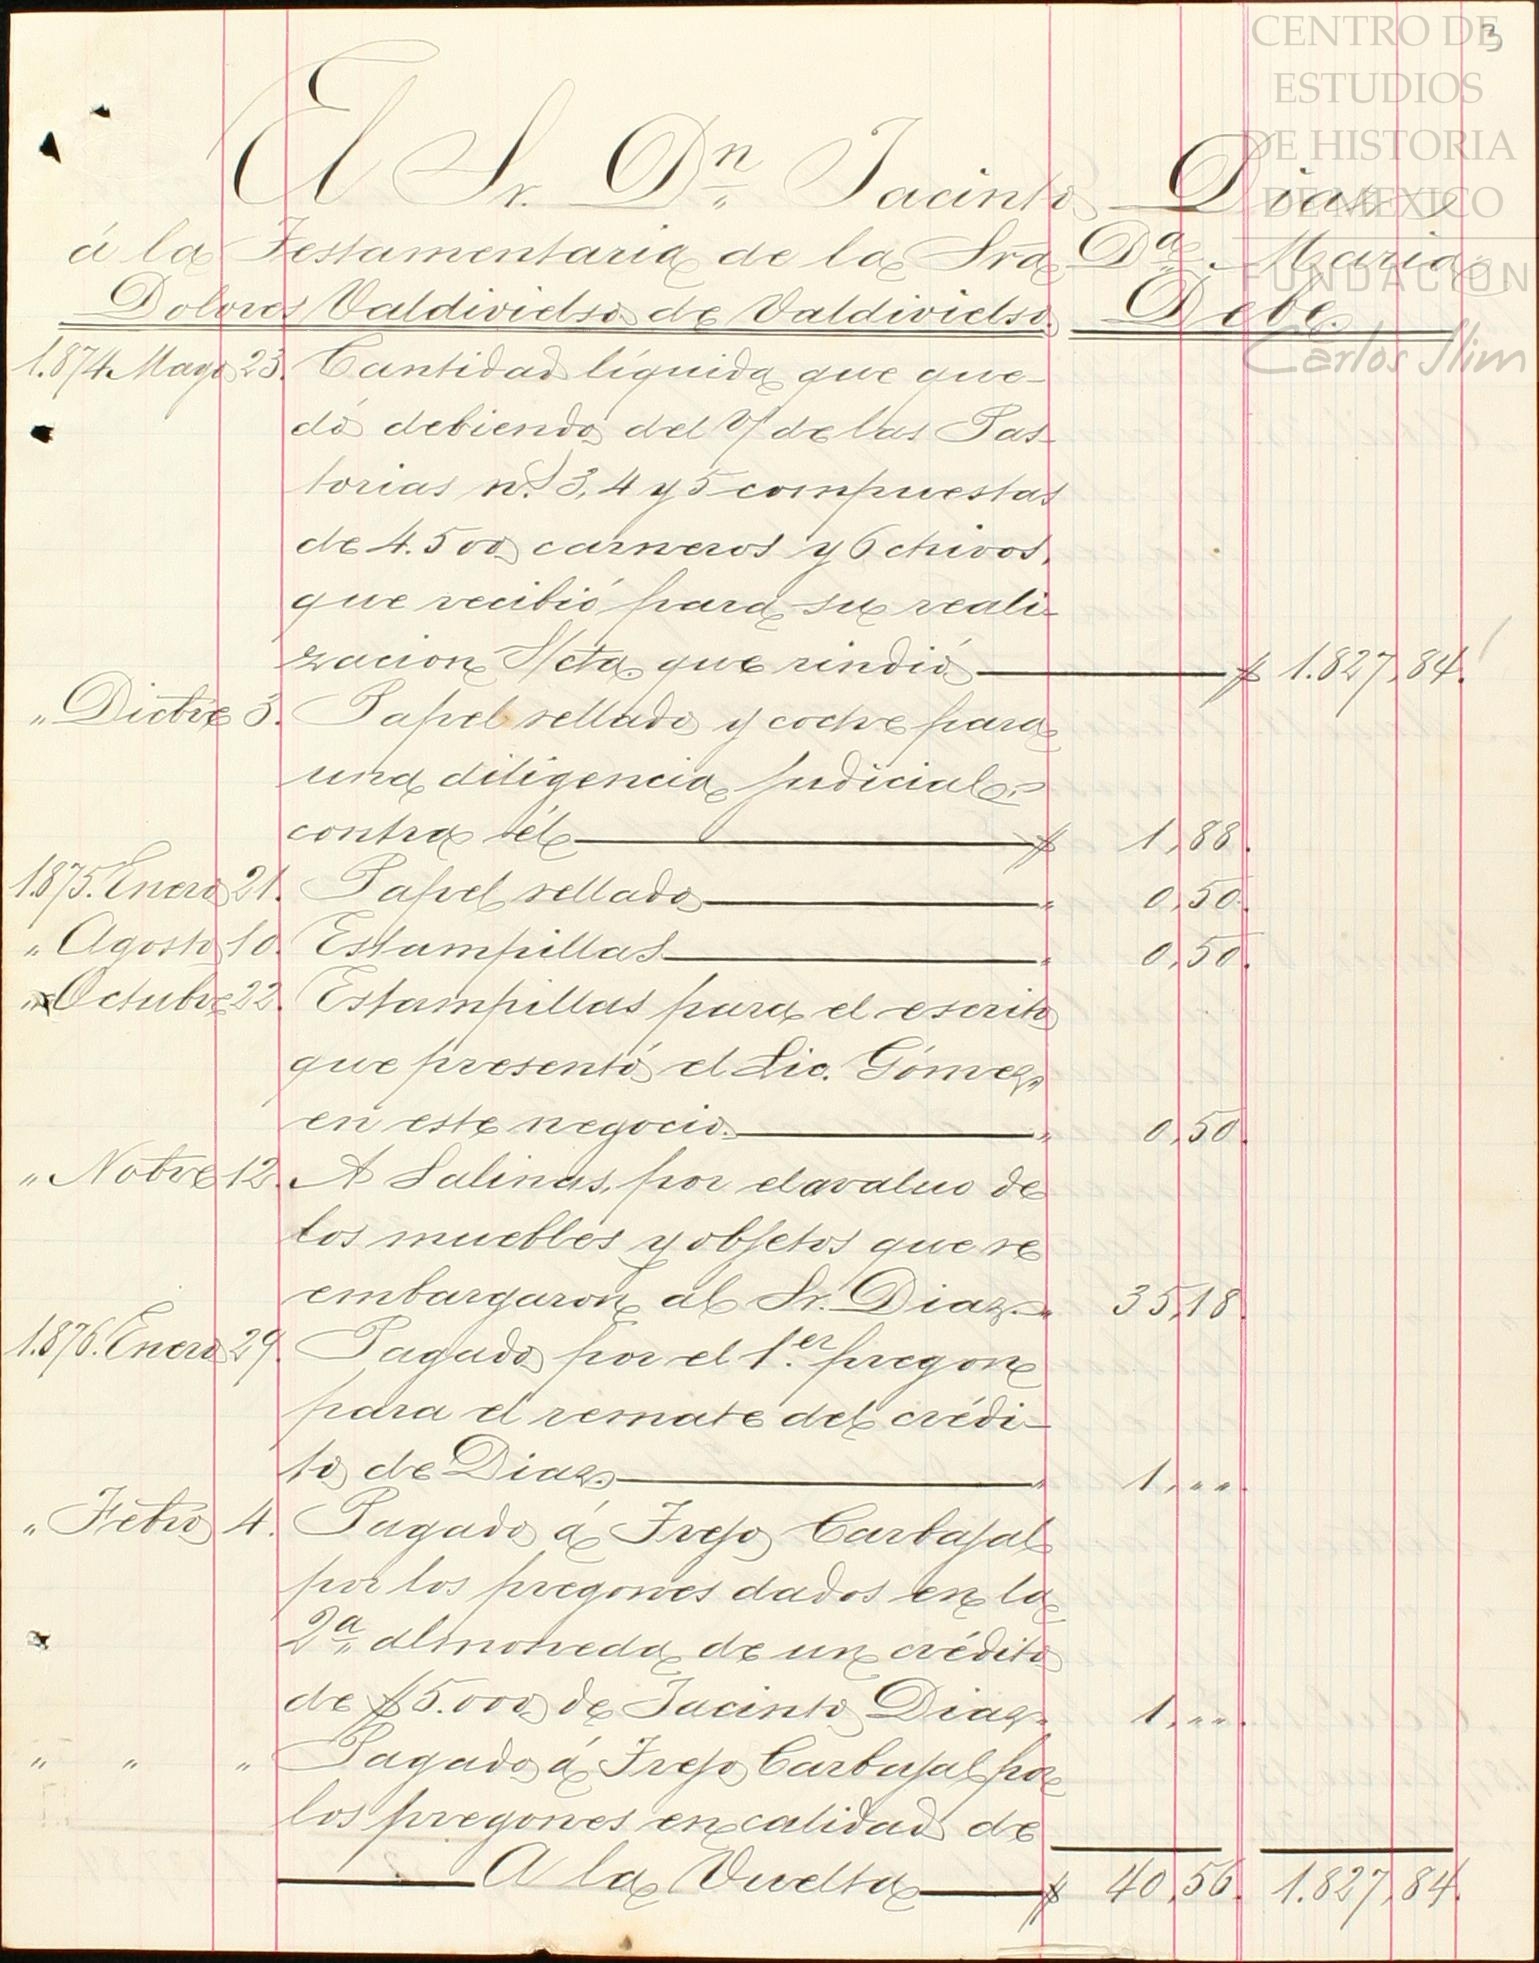 CENTRO DE
ESTUDIOS
DE HISTORIA
DE MEXICO
FUNDACIÓN
Carlos Slim
3
El Sr. Dn. Jacinto Diaz
á la Testamentaria de la Sra Da. Maria
Dolores Valdivielso de Valdivielso. Debe.
1.874. Mayo 23. Cantidad líquida que que-
dó debiendo del de las Pas-
torias n.s 3, 4 y 5 compuestas
de 4.500 carneros y 6 chivos,
que recibió para su reali-
zacion S/cta. que rindió $ 1.827,84.
" Dicbre 3. Papel sellado y coche para
una diligencia judicial
contra él $ 1,88.
1.875. Enero 21. Papel sellado " 0,50.
" Agosto 10. Estampillas " 0,50.
" Octubre 22. Estampillas para el escrito
que presentó el Lic. Gómez,
en este negocio. " 0,50.
" Nobre 12. A Salinas, por el avaluo de
los muebles y objetos que se
embargaron al Sr. Diaz. " 35,18.
1.876. Enero 29. Pagado por el 1.er pregon
para el remate del crédi-
to de Diaz. " 1,"".
" Febro 4. Pagado á Trejo Carbajal
por los pregones dados en la
2a almoneda de un crédito
de $5.000 de Jacinto Diaz. " 1,"".
" " " Pagado á Trejo Carbajal por
los pregones en calidad de
A la Vuelta $ 40,56. 1.827,84.